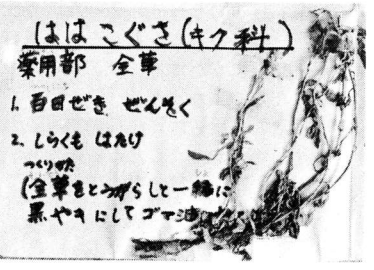 ははこぐさ(キク科)
薬用部 全草
1. 百日ぜき ぜんそく
2. しらくも はたけ
つくりかた
(全草をとうがらしと一緒に
黒やきにしてゴマ油